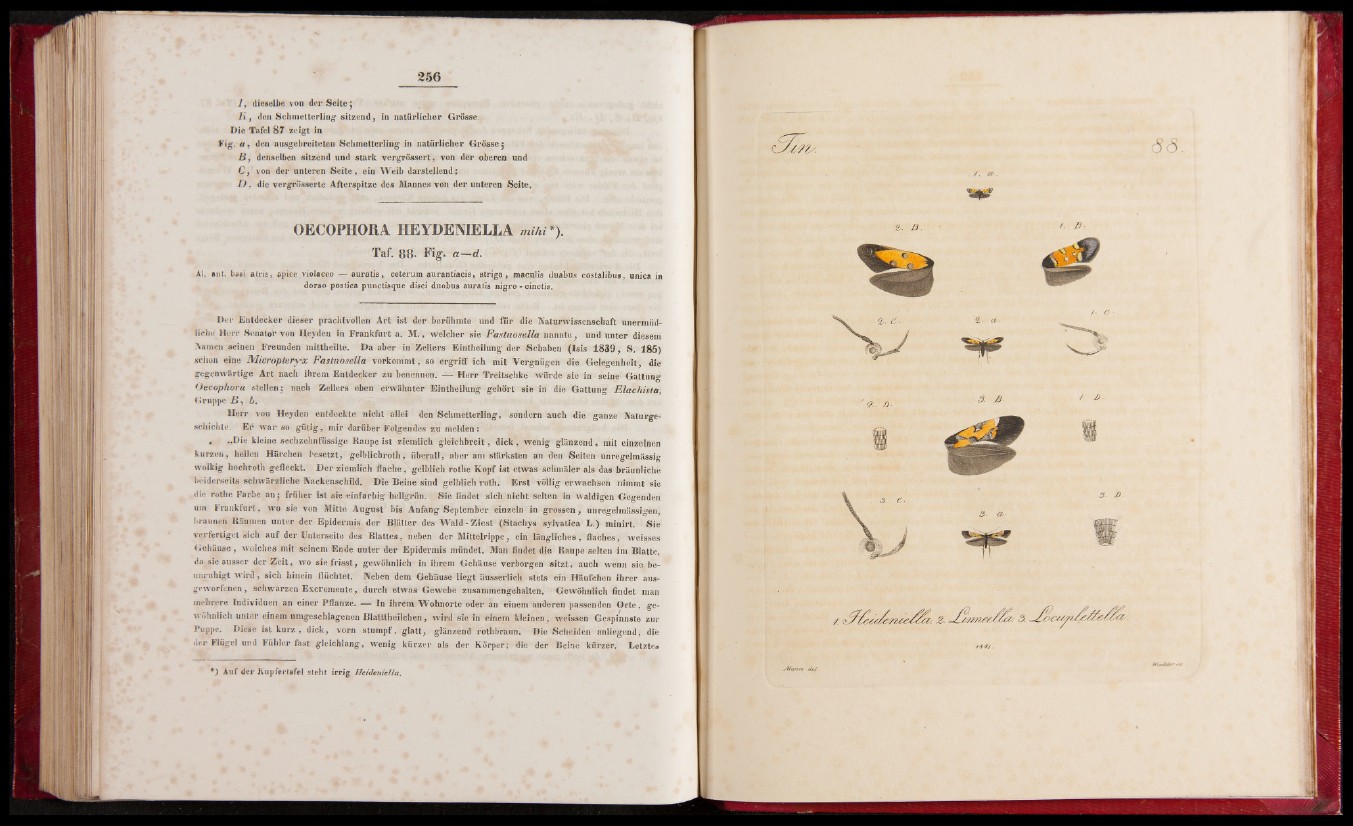 256
I, dieselbe von der Seite;
K, den Schmetterling sitzend, in natürlicher Grösse
Die Tafel 87 zeigt in
Fig. a, den ausgebreiteten Schmetterling in natürlicher Grösse;
B, denselben sitzend und stark vergrössert, von der oberen und
C, von der unteren Seite, ein Weib darstellend;
D, die vergrösserte Afterspitze des Mannes von der unteren Seite.
OECOPHORA HEYDENIELLA mihi *).
Taf. 88. Fig. a—d.
Al. ant. basi atris, apice violaceo — auratis, ceterum aurantiacis, striga, maculis duabus costalibus, unica in
dorso postica punctisque disci duobus auratis nigro-cinctis.
Der Entdecker dieser prachtvollen Art ist der berühmte und für die Naturwissenschaft unermüd-
liche Herr Senator von Heyden in Frankfurt a. M., welcher sie Fastuosella nannte, und unter diesem
Namen seinen Freunden mittheilte. Da aber in Zellers Eintheilung der Schaben (Isis 1839, S. 185)
schon eine Micropteryx Fastuosella vorkommt, so ergriff ich mit Vergnügen die Gelegenheit, die
gegenwärtige Art nach ihrem Entdecker zu benennen. — Herr Treitschke würde sie in seine Gattung
Oecophora stellen; nach Zellers oben erwähnter Eintheilung gehört sie in die Gattung Elachista,
Gruppe B, b.
Herr von Heyden entdeckte nicht allei den Schmetterling, sondern auch die ganze Naturge-
schichte. Er war so gütig, mir darüber Folgendes zu melden:
„Die kleine sechzehnfüssige Raupe ist ziemlich gleichbreit, dick, wenig glänzend, mit einzelnen
kurzen, hellen Härchen besetzt, gelblichroth, überall, aber am stärksten an den Seiten unregelmässig
wolkig hochroth gefleckt. Der ziemlich flache, gelblich rothe Kopf ist etwas schmäler als das bräunliche
beiderseits schwärzliche Nackenschild. Die Beine sind gelblich roth. Erst völlig erwachsen nimmt sie
die rothe Farbe an; früher ist sie einfarbig hellgrün. Sie findet sich nicht selten in waldigen Gegenden
um Frankfurt, wo sie von Mitte August bis Anfang September einzeln in grossen, unregelmässigen,
braunen Räumen unter der Epidermis der Blätter des Wald-Ziest (Stachys sylvatica L.) minirt. Sie
verfertiget sich auf der Unterseite des Blattes, neben der Mittelrippe, ein längliches, flaches, weisses
Gehäuse, welches mit seinem Ende unter der Epidermis mündet. Man findet die Raupe selten im Blatte,
da sie ausser der Zeit, wo sie frisst, gewöhnlich in ihrem Gehäuse verborgen sitzt, auch wenn sie be-
unruhigt wird, sich hinein flüchtet. Neben dem Gehäuse liegt äusserlich stets ein Häufchen ihrer aus-
geworfenen, schwarzen Excremente, durch etwas Gewebe zusammengehalten. Gewöhnlich findet man
mehrere Individuen an einer Pflanze. — In ihrem Wohnorte oder an einem anderen passenden Orte, ge-
wöhnlich unter einem umgeschlagenen Blatttheilchen, wird sie in einem kleinen, weissen Gespinnste zur
Puppe. Diese ist kurz, dick, vorn stumpf, glatt, glänzend rothbraun. Die Scheiden anliegend, die
der Flügel und Fühler fast gleichlang, wenig kürzer als der Körper; die der Beine kürzer. Letztes
*) Auf der Kupfertafel steht irrig Heideniella.
Tin. 88.
1. a.
2. B. 1. B.
2. C. 2. a. 1. C.
2. D. 3. B. 1. D.
3. C. 3. a. 3. D.
1. Heideniella. 2. Linneella. 3. Locuplettella.
1841.